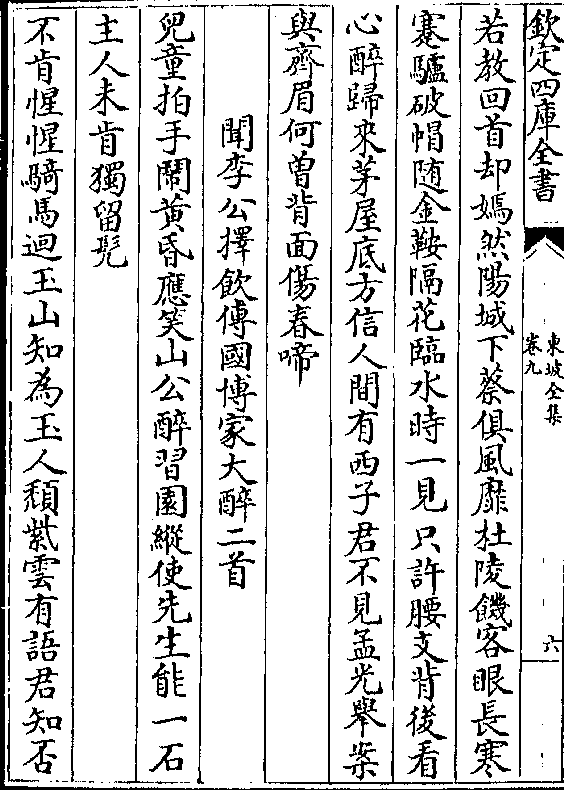 欽定四庫全書
東坡全集
卷九
六
若教回首却嫣然陽城下蔡俱風靡杜陵饑客眼長寒
蹇驢破帽随金鞍隔花臨水時一見只許腰支背後看
心醉歸來茅屋底方信人間有西子君不見孟光舉案
與齊眉何曾背面傷春啼
聞李公擇飲傅國博家大醉二首
兒童拍手鬧黄昏應笑山公醉習園縱使先生能一石
主人未肯獨留髠
不肯惺惺騎馬迴玉山知為玉人頽紫雲有語君知否